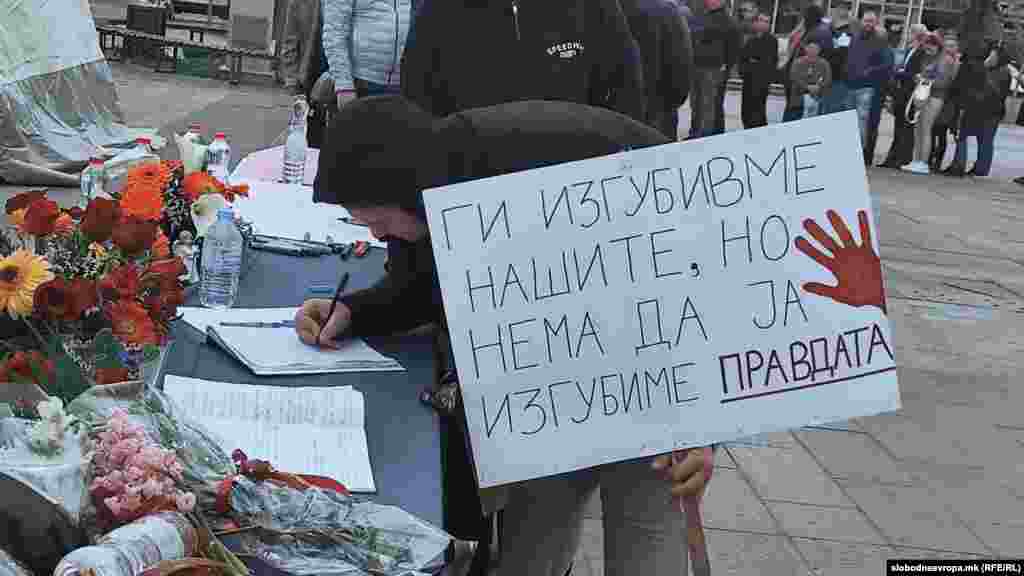 SPEEDWAY
ГИ ИЗГУБИВМЕ
НАШИТЕ, НО
НЕМА ДА ЈА
ИЗГУБИМЕ ПРАВДАТА
slobodnaevropa.mk (RFE/RL)